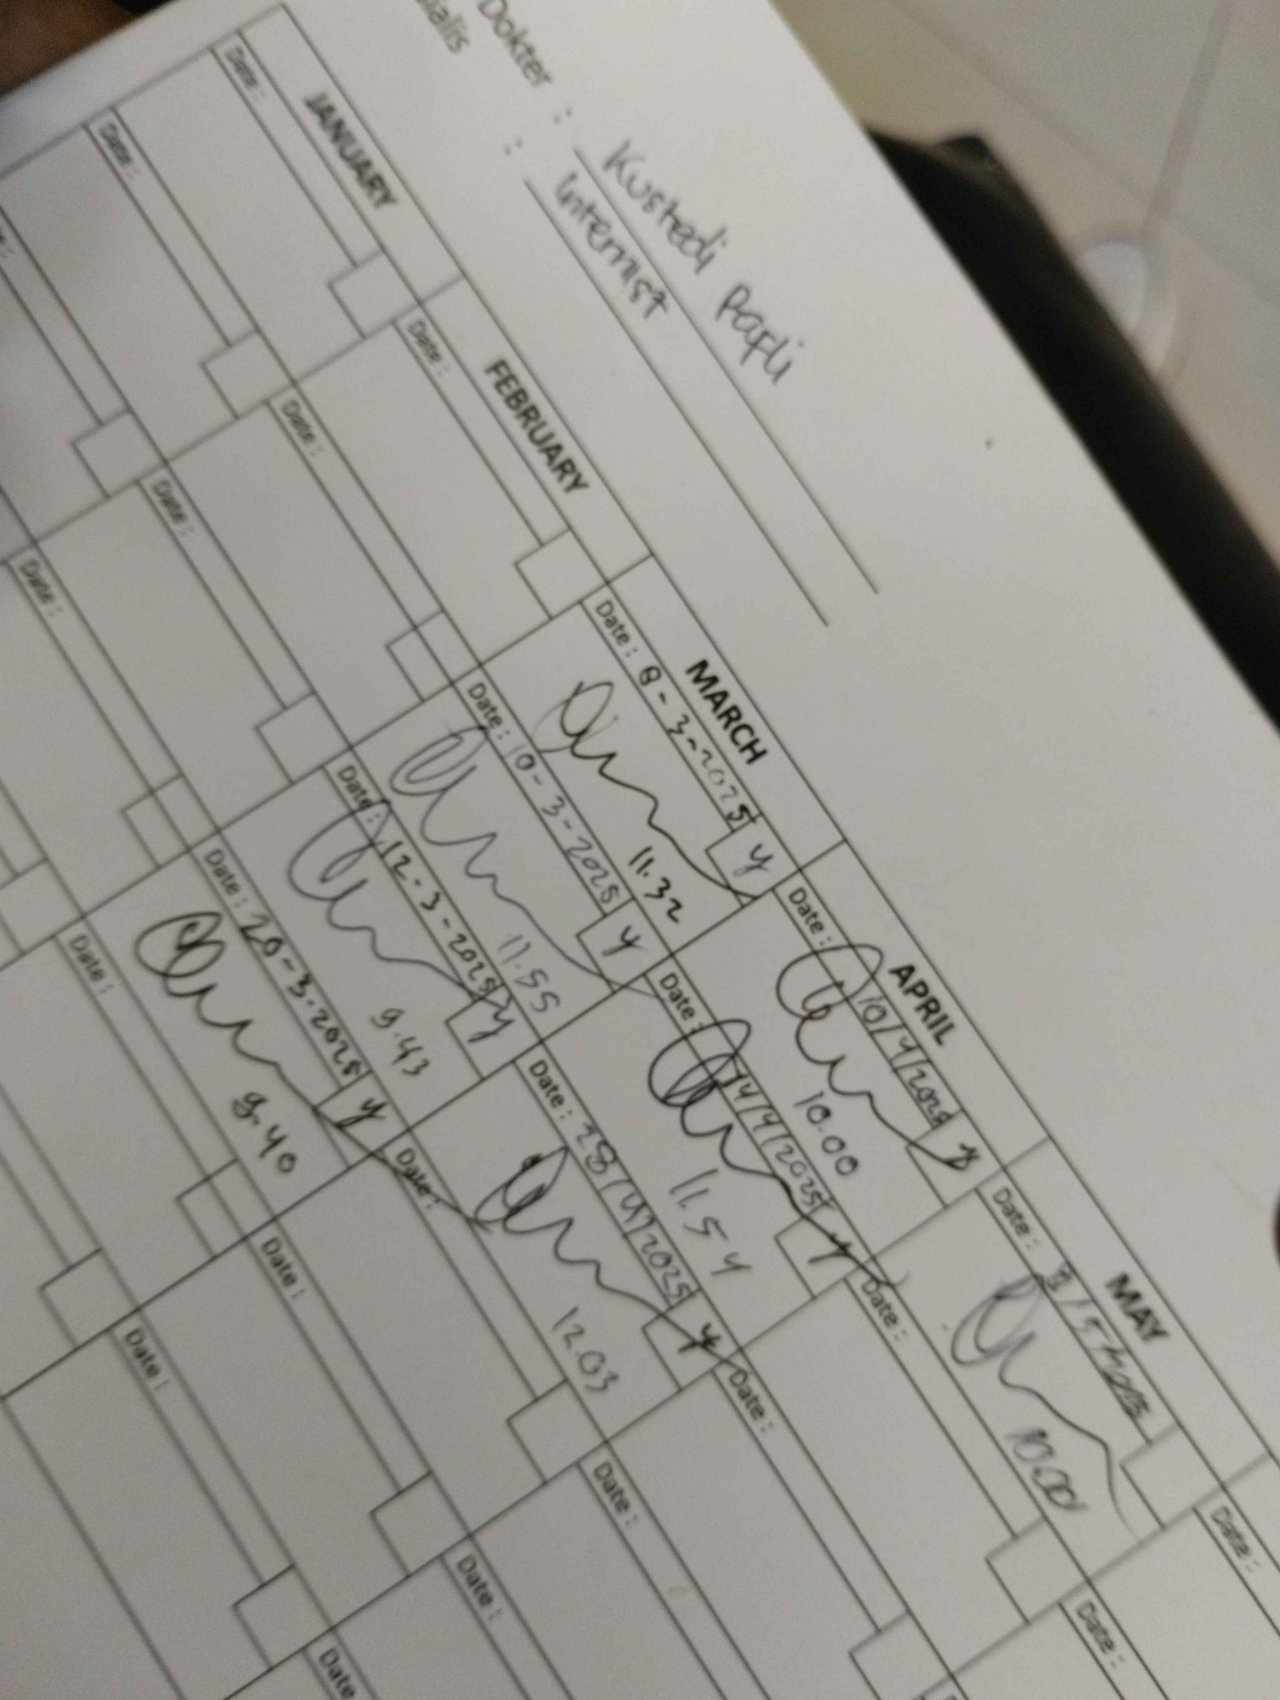 Dokter : Kustedi Papli
: Internist
JANUARY
Date :
Date :
FEBRUARY
Date :
Date :
Date :
Date :
MARCH
Date : 8-3-2025 y
11.32
Date : 10-3-2025 y
11.55
Date : 12-3-2025 y
9.43
Date : 20-3-2025 y
9.40
Date :
APRIL
Date : 10/4/2025
10.00
Date : 14/4/2025 y
11.54
Date : 28/4/2025 y
12.03
Date :
Date :
Date :
MAY
Date :
10.00
Date :
Date :
Date :
Date :
Date
Date :
Date :